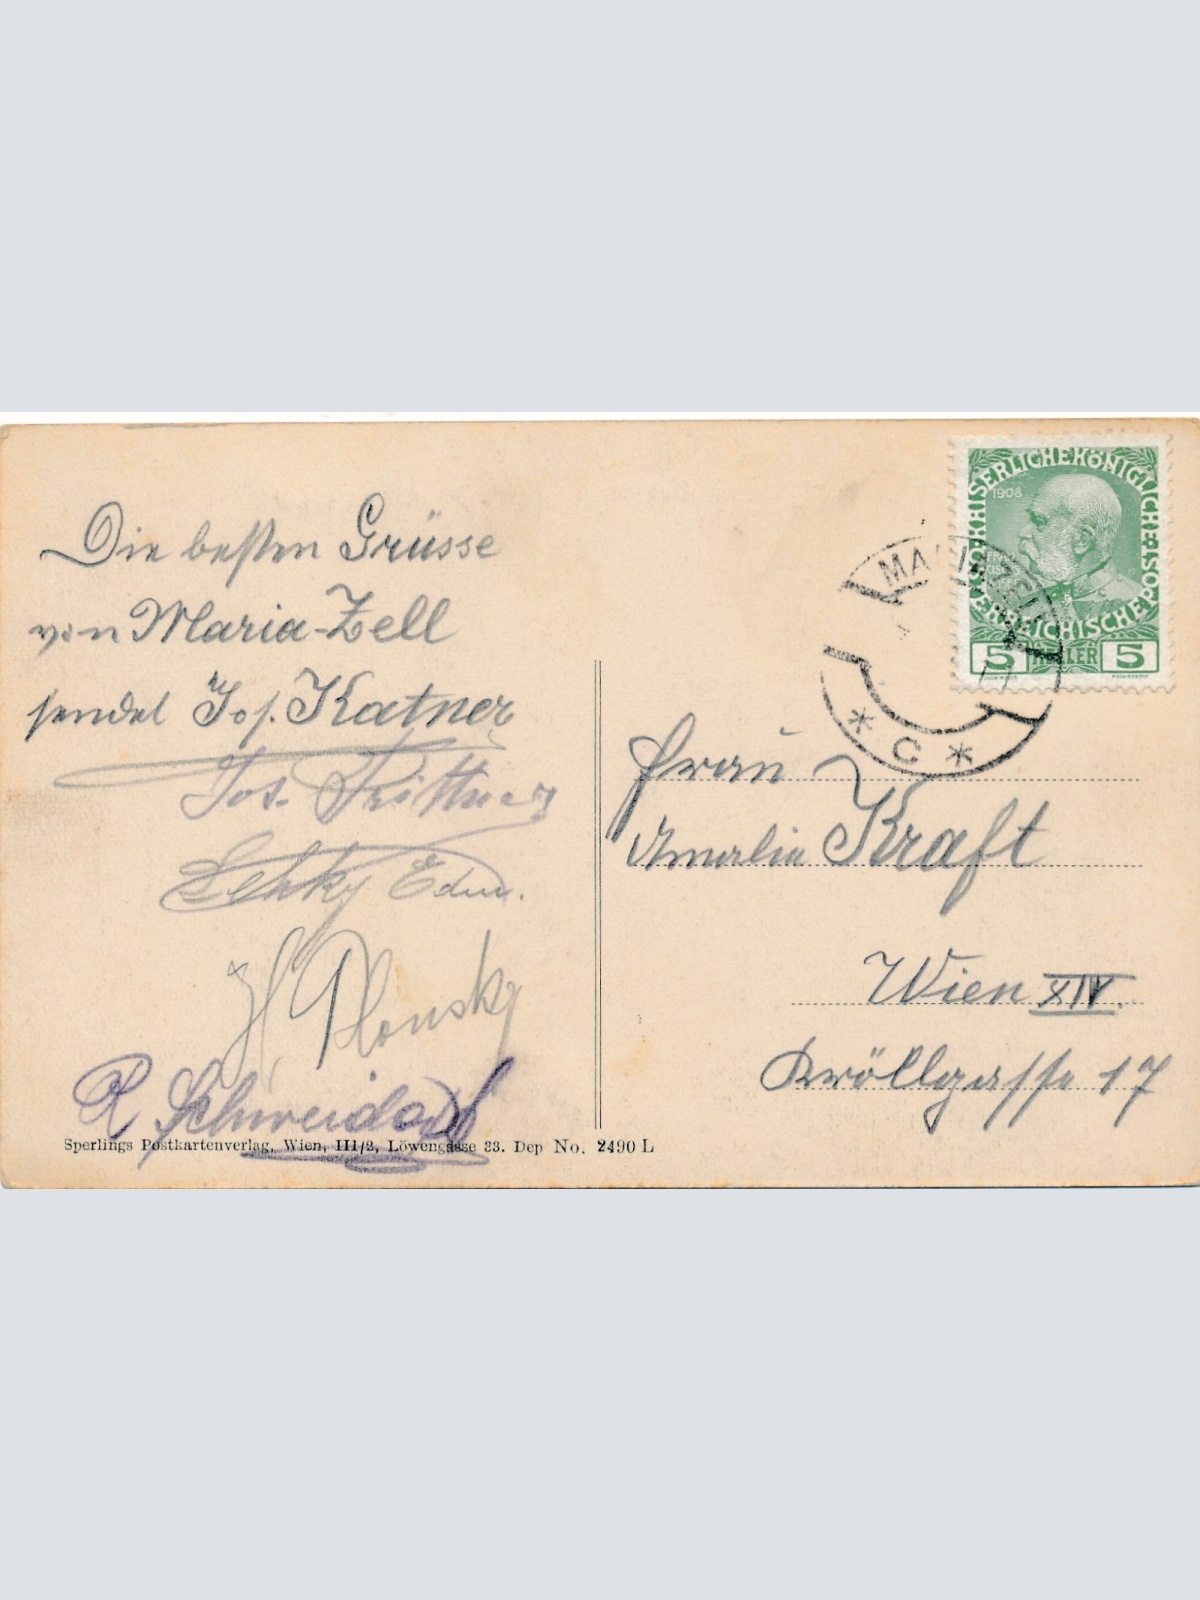 Die besten Grüsse
von Maria-Zell
sendet Jos. Katner
Jos. Trittner
Edm.
H. Plonsky
R Schweidorf
Sperlings Postkartenverlag, Wien, III/2, Löwengasse 33. Dep No. 2490 L
KAISERLICHE KÖNIGLICHE ÖSTERREICHISCHE POST
1908
5 HELLER 5
MARIAZELL
* C *
Frau
Amalia Kraft
Wien XIV.
Kröllgasse 17